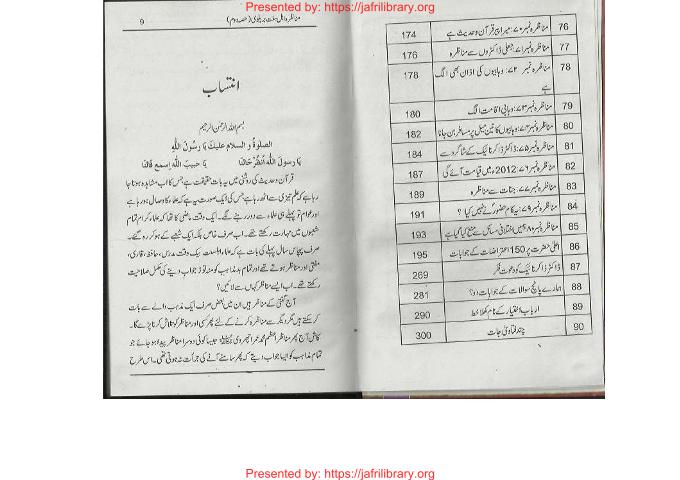 Presented by: https://jafrilibrary.org
76 مناظرہ نمبر ۷۰: میرا پیر قرآن وحدیث ہے 174
77 مناظرہ نمبر ۷۱: جعلی ڈاکٹروں سے مناظرہ 176
78 مناظرہ نمبر ۷۲: وہابیوں کی اذان بھی الگ ہے 178
79 مناظرہ نمبر ۷۳: وہابی اقامت الگ 180
80 مناظرہ نمبر ۷۴: وہابیوں کا تین میل پر مسافر بن جانا 182
81 مناظرہ نمبر ۷۵: ڈاکٹر ذاکر نائیک کے شاگرد سے 184
82 مناظرہ نمبر ۷۶: 2012ء میں قیامت آئے گی 187
83 مناظرہ نمبر ۷۷: جنات سے مناظرہ 189
84 مناظرہ نمبر ۷۹: یہ کام حضور نے نہیں کیا؟ 191
85 مناظرہ نمبر ۸۰: ہمیں اختلافی مسائل سے منع کیا گیا ہے 193
86 اعلیٰ حضرت پر 150 اعتراضات کے جوابات 195
87 ڈاکٹر ذاکر نائیک کو دعوت فکر 269
88 ہمارے پانچ سوالات کے جوابات دو؟ 281
89 ارباب اختیار کے نام کھلا خط 290
90 چند فتاویٰ جات 300
مناظرہ اہل سنت بریلوی (حصہ دوم) 9
انتساب
بسم اللہ الرحمن الرحیم
الصلوۃ و السلام علیک یا رسول اللہ
یا رسول اللہ انظر حالنا یا حبیب اللہ اسمع قالنا
قرآن وحدیث کی روشنی میں یہ بات حقیقت ہے جس کا اب مشاہدہ ہوتا جا
رہا ہے کہ علم تیزی سے اٹھ رہا ہے جس کی ایک صورت یہ ہے کہ علماء کا وصال ہو رہا ہے
اور عوام تو پہلے ہی علماء سے دور رہنے لگے۔ ایک وقت ماضی کا تھا کہ علماء کرام تمام
شعبوں میں مہارت رکھتے تھے۔ اب صرف خاص بلکہ ایک شعبے کے ہو کر رہ گئے۔
صرف پچاس سال پہلے کی بات ہے کہ علماء اہلسنت بیک وقت مدرس، حافظ، قاری،
مفتی اور مناظر ہوتے تھے اور تمام بدمذاہب کو منہ توڑ جواب دینے کی مکمل صلاحیت
رکھتے تھے۔ اب ایسے مناظر کہاں سے لائیں؟
آج گنتی کے مناظر ہیں ان میں بعض صرف ایک مذہب والے سے بات
کر سکتے ہیں مگر دیگر سے مناظرہ کرنے کے لئے پھر کسی اور مناظر کو تلاش کرنا پڑے گا۔
کاش آج پھر مناظر اعظم محمد عمر اچھروی جیسا کوئی دوسرا مناظر پیدا ہو جائے جو
تمام مذاہب کو ایسا جواب دیتے کہ پھر سامنے آنے کی جرأت نہ ہوتی تھی۔ اس طرح
Presented by: https://jafrilibrary.org